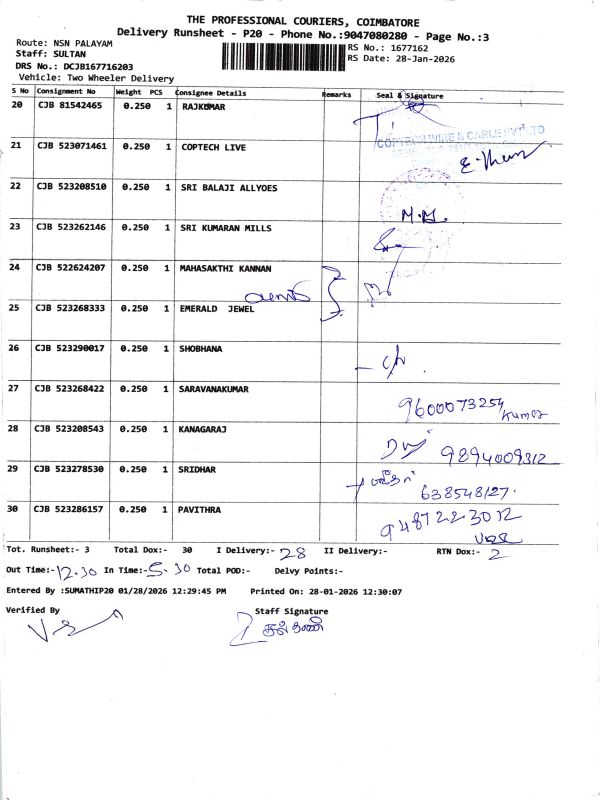 THE PROFESSIONAL COURIERS, COIMBATORE
Delivery Runsheet - P20 - Phone No.:9047080280 - Page No.:3
Route: NSN PALAYAM
RS No.: 1677162
Staff: SULTAN
RS Date: 28-Jan-2026
DRS No.: DCJB167716203
Vehicle: Two Wheeler Delivery
S No Consignment No Weight PCS Consignee Details Remarks Seal & Signature
20 CJB 81542465 0.250 1 RAJKUMAR
COPTECH WIRE & CABLE PVT LTD
21 CJB 523071461 0.250 1 COPTECH LIVE
22 CJB 523208510 0.250 1 SRI BALAJI ALLYOES
23 CJB 523262146 0.250 1 SRI KUMARAN MILLS
24 CJB 522624207 0.250 1 MAHASAKTHI KANNAN
25 CJB 523268333 0.250 1 EMERALD JEWEL
26 CJB 523290017 0.250 1 SHOBHANA
27 CJB 523268422 0.250 1 SARAVANAKUMAR 9600073254 Kumar
28 CJB 523208543 0.250 1 KANAGARAJ 9894009312
29 CJB 523278530 0.250 1 SRIDHAR 638548127.
30 CJB 523286157 0.250 1 PAVITHRA 9487223012
Tot. Runsheet:- 3 Total Dox:- 30 I Delivery:- 28 II Delivery:- RTN Dox:- 2
Out Time:- 12.30 In Time:- 5.30 Total POD:- Delvy Points:-
Entered By :SUMATHIP20 01/28/2026 12:29:45 PM Printed On: 28-01-2026 12:30:07
Verified By Staff Signature